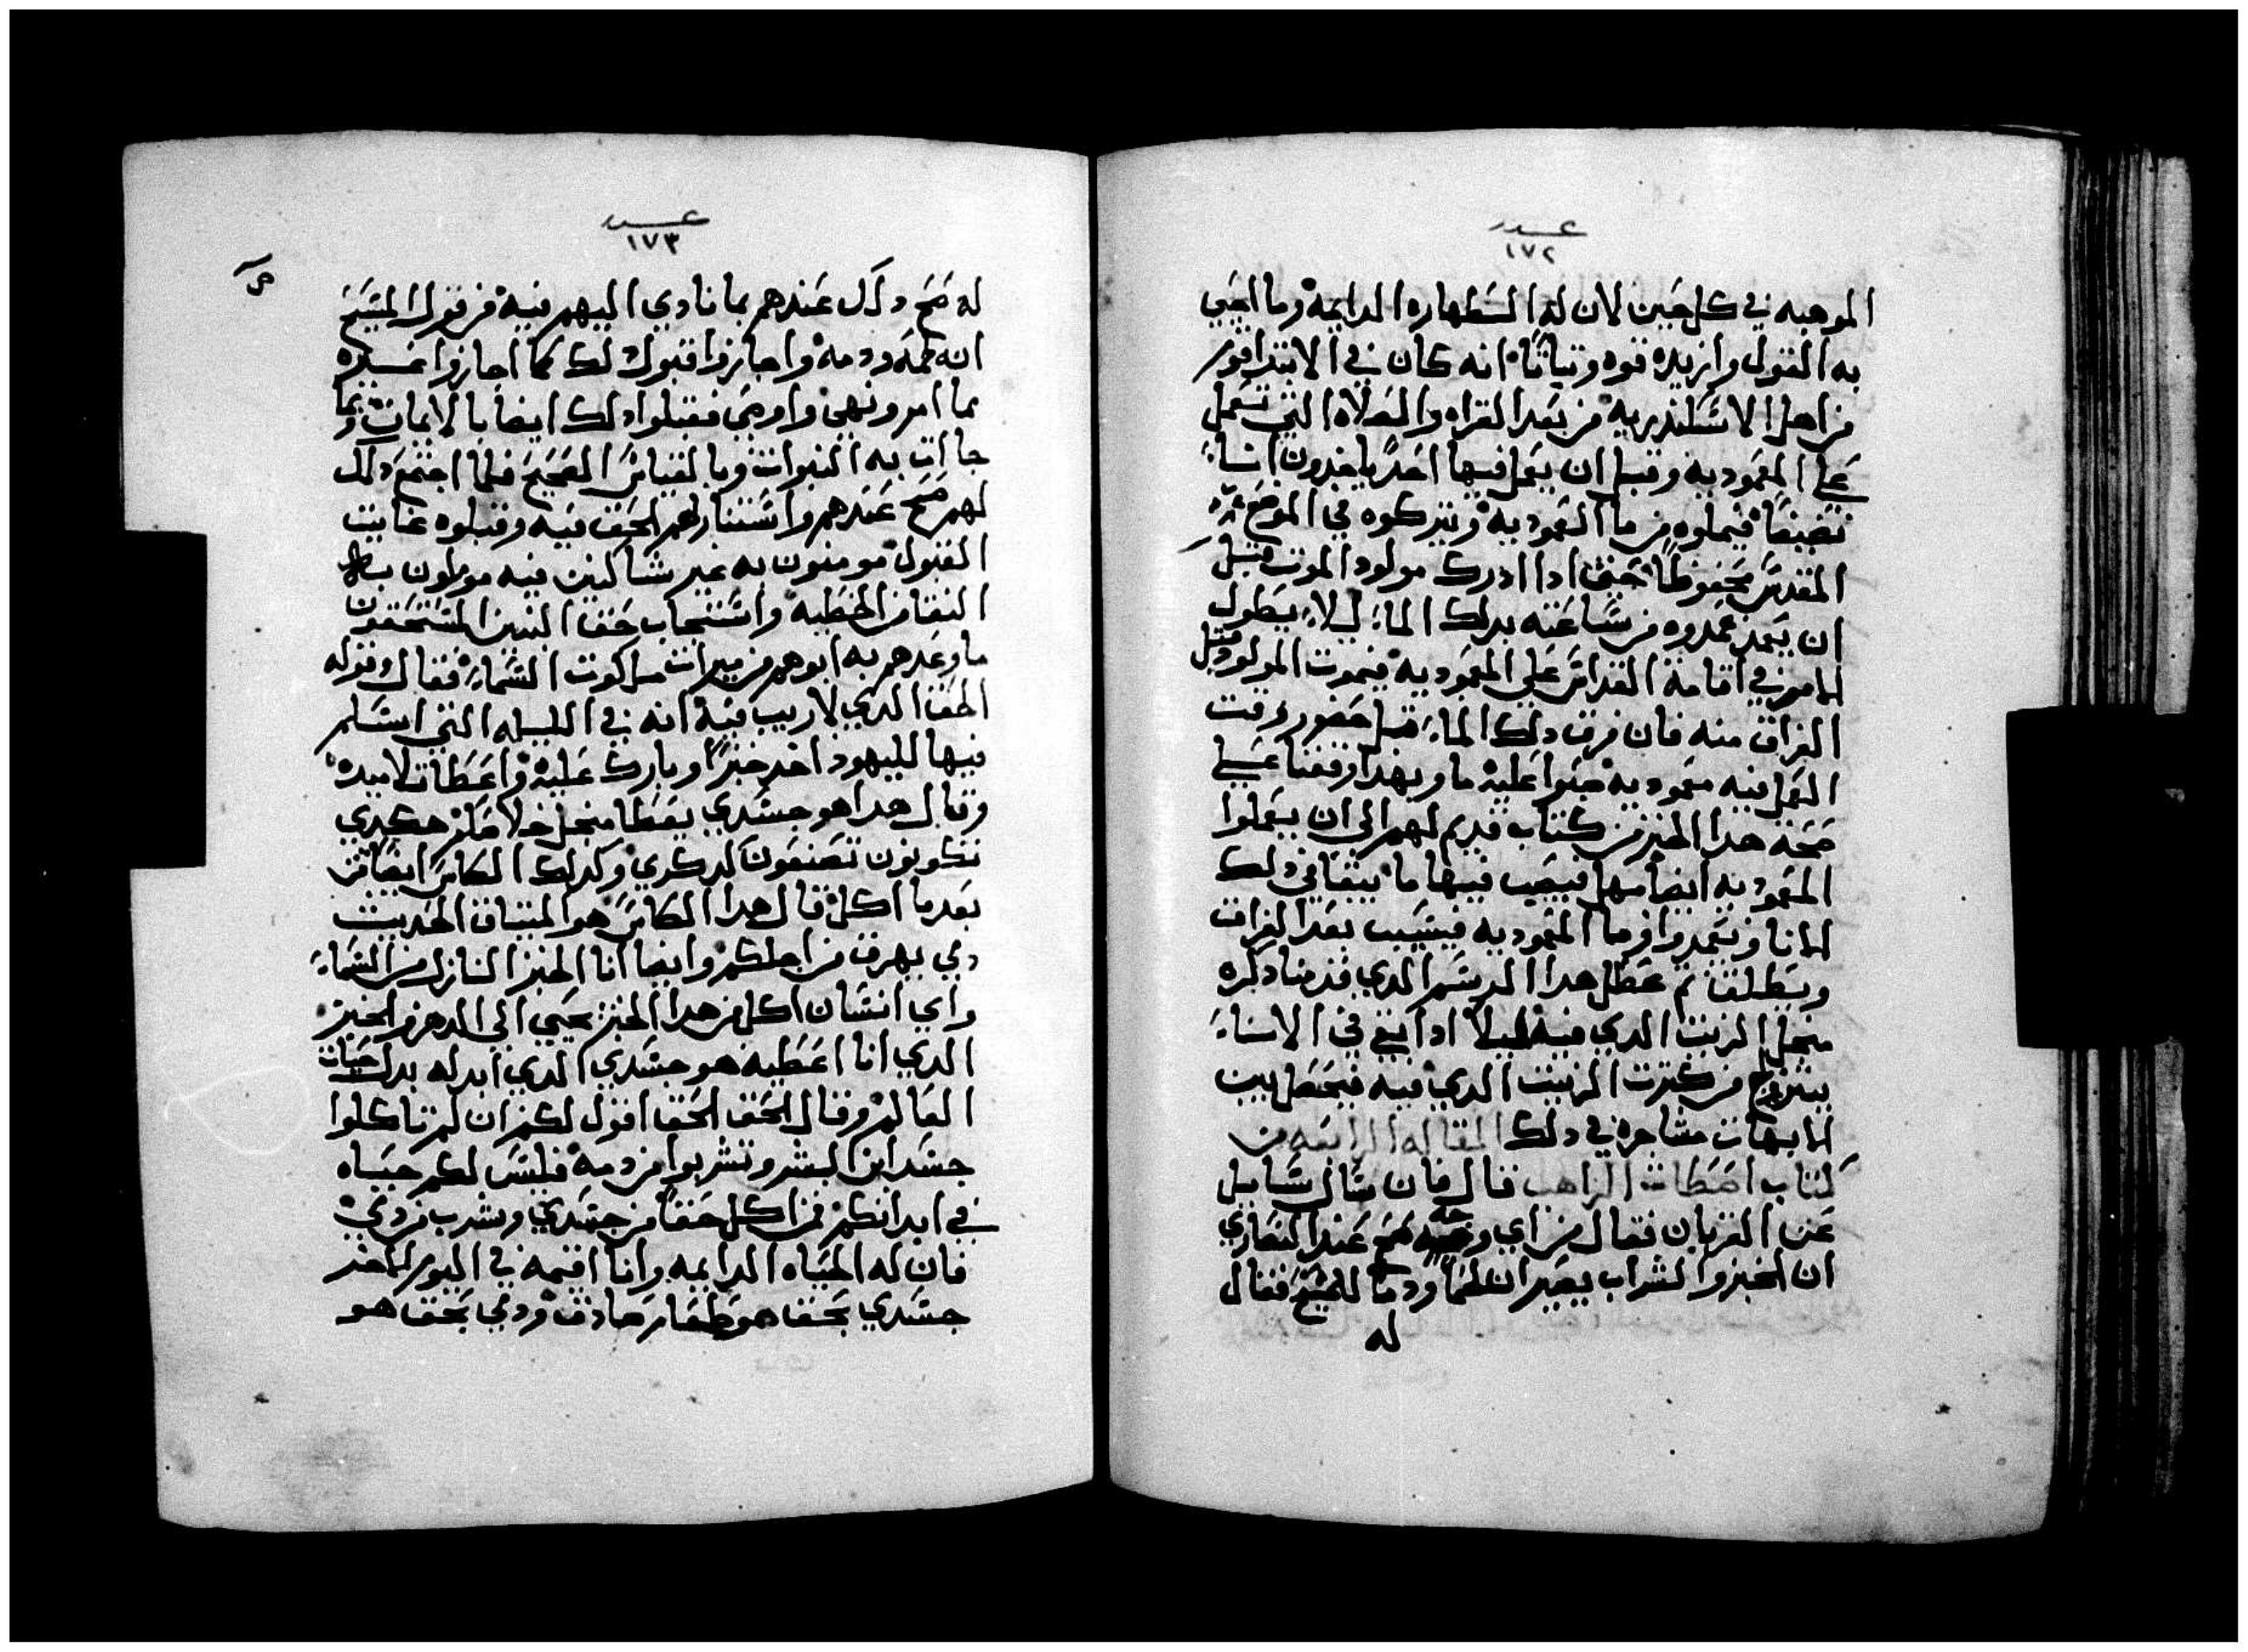 عدد
١٧٢
الموهبه في كل حين لان له السطهاره الدايمه وما احيي
به القول وازيده قوه وتباتًا انه كان في الابتدا قوم
من اهل الاسكندريه من بعد القراه والصلاه التي تعمل
علي المعموديه وقبل ان يعمل فيها احدًا ياخدون انساءً
نضيفًا فيملوه من ما المعموديه ويتركوه في الموضع
المقدس محفوظًا حتي ادا ادرك مولود الموت قبل
ان يعمد عمدوه من ساعته بدلك الماء ليلا يطول
في اقامة القداس علي المعموديه فيموت المولود قبل
الفراق منه فان فرق دلك الماء قبل حضور وقت
العمل فيه معموديه صبوا عليه ما وبهدا وقفنا علي
صحة هدا الخبز من كتاب قديم لهم الي ان يعملوا
المعموديه ايضا منها فيصب فيها ما يبقا في دلك
الانا ويتعمدوا من ما المعموديه فيسيب بعد الفراق
ويطلق تم عطل هدا الرسم الدي قدمنا دكره
من اجل الزيت الدي فيه ليلا ادا بقي في الاناء
يتزنج من كترت الزيت الدي فيه فيحصل بين
الابهات مشاجره في دلك المقاله الرابعه من
كتاب اصطات الراهب قال فان سال سايل
عن القربان فقال من اي وجه صح عند النصاري
ان الخبز والشراب يصيران لحمًا ودمًا للمسيح فقال
له
عدد
١٧٣
له صح دلك عندهم بما نادي اليهم فيه من قول المسيح
انه لحمه ودمه واجازوا قبول دلك كما اجازوا غيره
بما امر ونهي واوصي فقبلوا دلك ايضا بالايمان وبما
جاات به النبوات وبالقياس الصحيح فلما اجتمع دلك
لهم صح عندهم واستنار لهم الحق فيه وقبلوه غايت
القبول مومنون به غير شاكين فيه موملون به
النقا من الخطيه واستنجاب حق البنين المستحقون
ما وعدهم به ابوهم من ميرات ملكوت السماء فقال وقوله
الحق الدي لا ريب فيه انه في الليله التي اسلم
فيها لليهود اخد خبزًا وبارك عليه واعطا تلاميده
وقال هدا هو جسدي يعطا من اجل خلاصكم هكدي
تكونون تصنعون لدكري وكدلك الكاس ايضًا من
بعد ما اكل قال هدا الكاس هو الميتاق الحديت
دمي يهرق من اجلكم وايضا انا الخبز النازل من السماء
واي انسان اكل من هدا الخبز يحيي الي الدهر والخبز
الدي انا اعطيه هو جسدي الدي ابدله بدل حيات
العالم وقال الحق الحق اقول لكم ان لم تاكلوا
جسد ابن البشر وتشربوا من دمه فليس لكم حياه
في ابدانكم من اكل حقًا من جسدي وشرب من دمي
فان له الحياه الدايمه وانا اقيمه في اليوم الاخر
جسدي بحق هو طعام صادق ودمي بحق هو